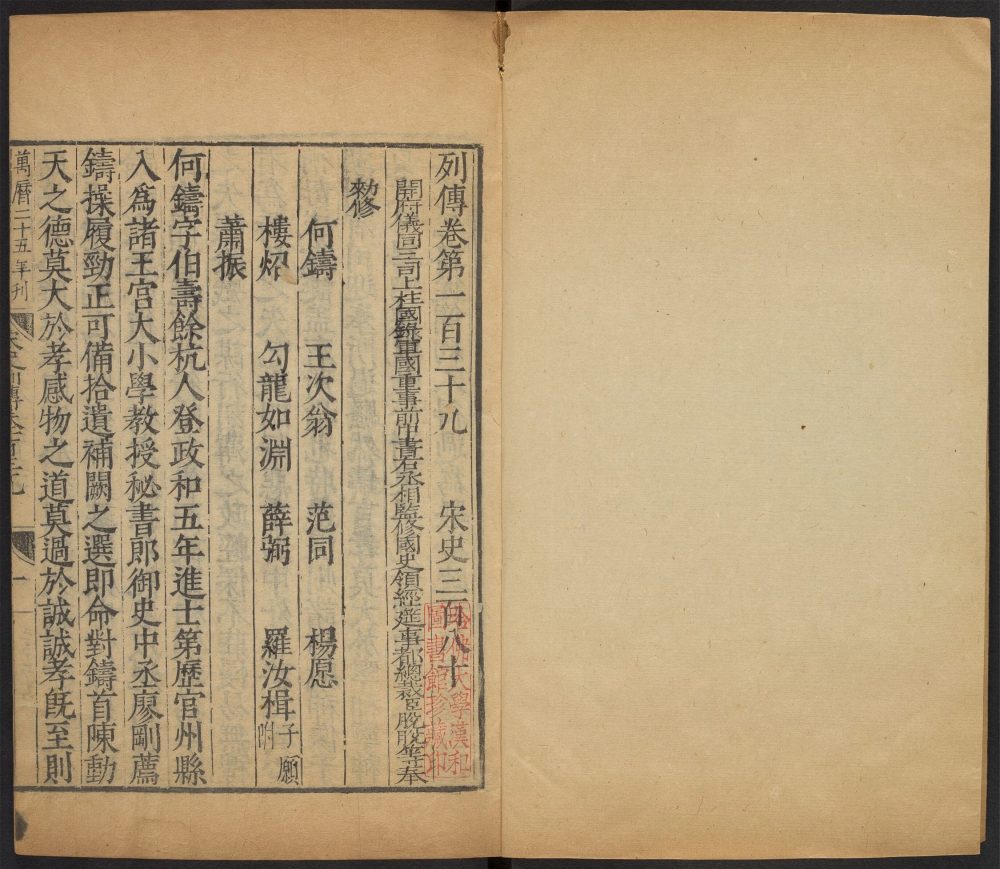 列傳卷第一百三十九 宋史三百八十
開府儀同三司上柱國錄軍國重事前中書右丞相監修國史領經筵事都總裁臣脫脫等奉
勑修
何鑄 王次翁 范同 楊愿
樓炤 勾龍如淵 薛弼 羅汝楫 子願附
蕭振
何鑄字伯壽餘杭人登政和五年進士第歷官州縣
入爲諸王宮大小學教授秘書郎御史中丞廖剛薦
鑄操履勁正可備拾遺補闕之選即命對鑄首陳動
天之德莫大於孝感物之道莫過於誠誠孝旣至則
萬曆二十五年刊
一
哈佛大學漢和
圖書館珍藏印